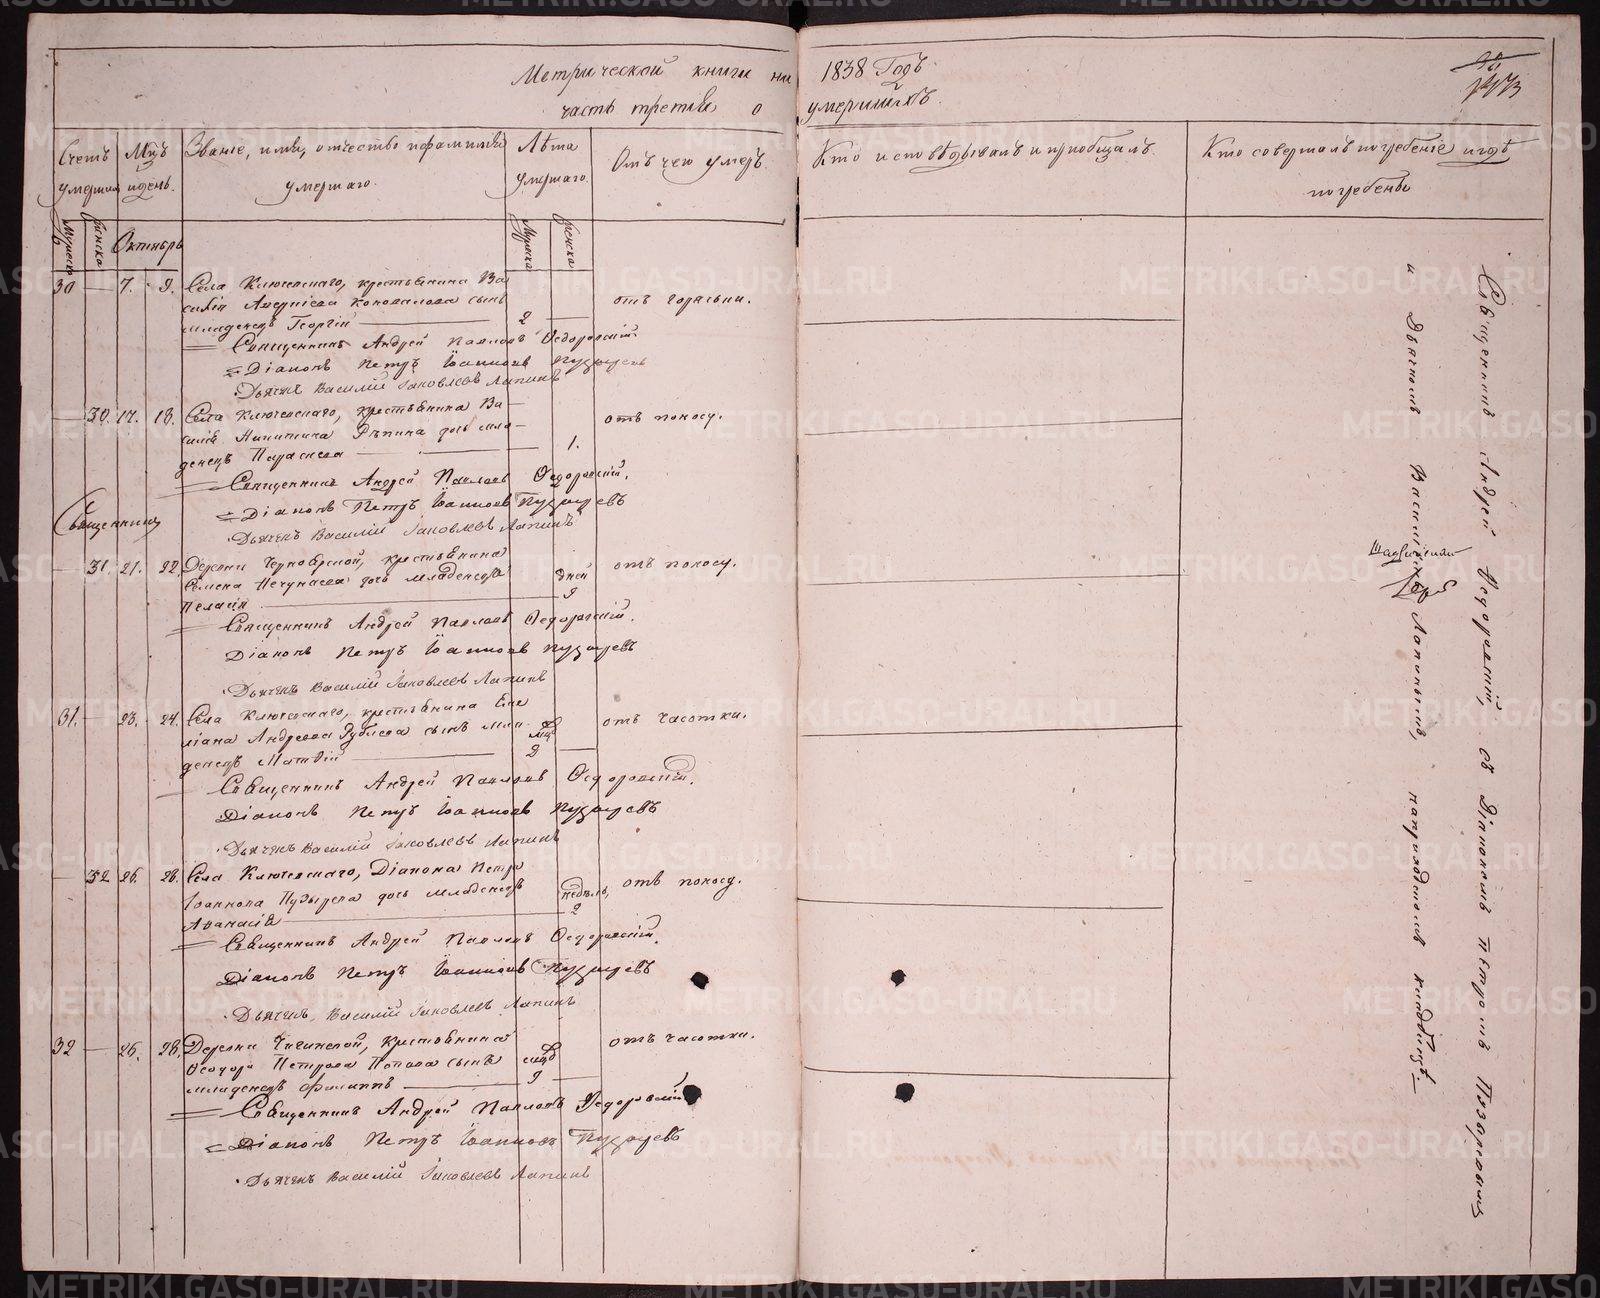 Метрической книги на 1838 Годъ
часть третія о умершихъ.
Счетъ умершихъ
Мцъ и день.
Званіе, имя, отчество и фамилія умершаго.
Лѣта умершаго.
Отъ чего умеръ.
Кто исповѣдывалъ и пріобщалъ.
Кто совершалъ погребеніе и гдѣ погребены
Мужеска
Женска
Октябрь
Мужеска
Женска
30 — 7. 9. Села Ключевскаго, крестьянина Ва
силія Коновалова сынъ
младенецъ Георгій — 2 — отъ горячки.
Священникъ Андрей Павловъ Ѳедоровскій
Діаконъ Петръ Іоанновъ Пузыревъ
Дьячекъ Василій Іаковлевъ Лапинъ
— 30. 17. 18. Села Ключевскаго, крестьянина Ва
силія Никитина Рѣпина дочь мла—
денецъ Параскева — 1. отъ поносу.
Священникъ Андрей Павловъ Ѳедоровскій.
Діаконъ Петръ Іоанновъ Пузыревъ
Дьячекъ Василій Іаковлевъ Лапинъ
Священникъ
— 31. 21. 22. Деревни крестьянина
Семена дочь младенецъ
Пелагія — дней 9 отъ поносу.
Священникъ Андрей Павловъ Ѳедоровскій.
Діаконъ Петръ Іоанновъ Пузыревъ
Дьячекъ Василій Іаковлевъ Лапинъ
31. — 23. 24. Села Ключевскаго, крестьянина Еме
ліана Андреева Рублева сынъ мла
денецъ Матвій — мцъ 2 — отъ часотки.
Священникъ Андрей Павловъ Ѳедоровскій.
Діаконъ Петръ Іоанновъ Пузыревъ
Дьячекъ Василій Іаковлевъ Лапинъ
— 32 26. 28. Села Ключевскаго, Діакона Петра
Іоаннова Пузырева дочь младенецъ
Аѳанасія — недѣль, 2 отъ поносу.
Священникъ Андрей Павловъ Ѳедоровскій.
Діаконъ Петръ Іоанновъ Пузыревъ
Дьячекъ Василій Іаковлевъ Лапинъ
32 — 26. 28. Деревни крестьянина
Ѳеодора Петрова Попова сынъ
младенецъ Филиппъ — 9 — отъ часотки.
Священникъ Андрей Павловъ Ѳедоровскій
Діаконъ Петръ Іоанновъ Пузыревъ
Дьячекъ Василій Іаковлевъ Лапинъ
Священникъ Андрей Ѳедоровскій, съ Діакономъ Петромъ Пузыревымъ
и Дьячкомъ Василіемъ Лапинымъ, на приходскомъ кладбищѣ.
METRIKI.GASO-URAL.RU